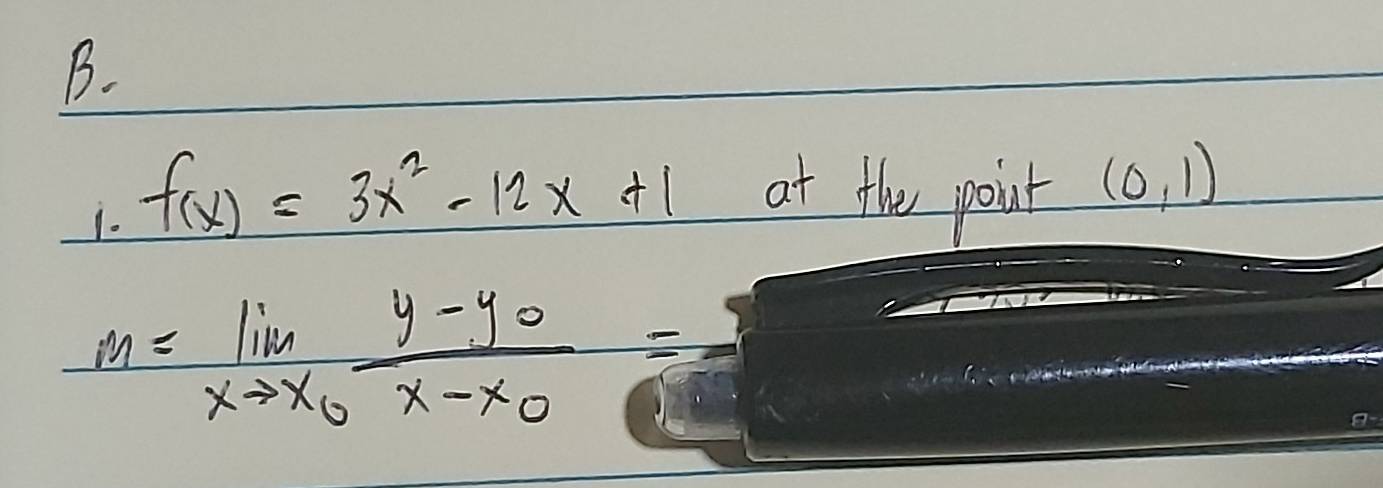 B.
1. f(x) = 3x² - 12x + 1 at the point (0,1)
m = lim x→x₀ y - y₀ / x - x₀ =